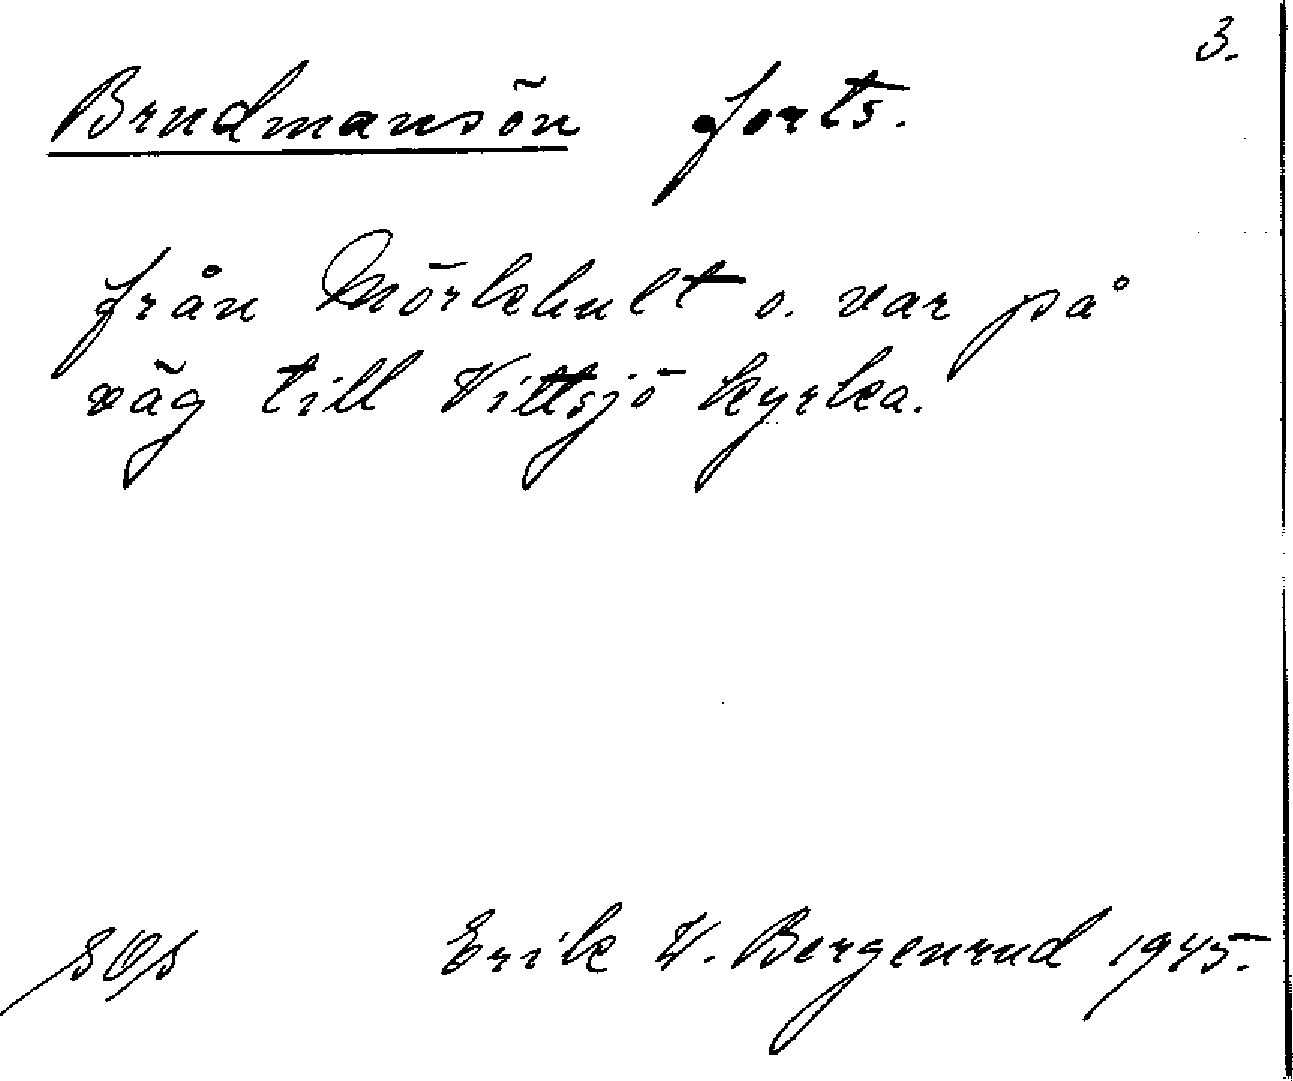 3.
Brudmansön forts.
från Mörkhult o. var på
väg till Vittsjö kyrka.
Erik V. Bergenrud 1945.